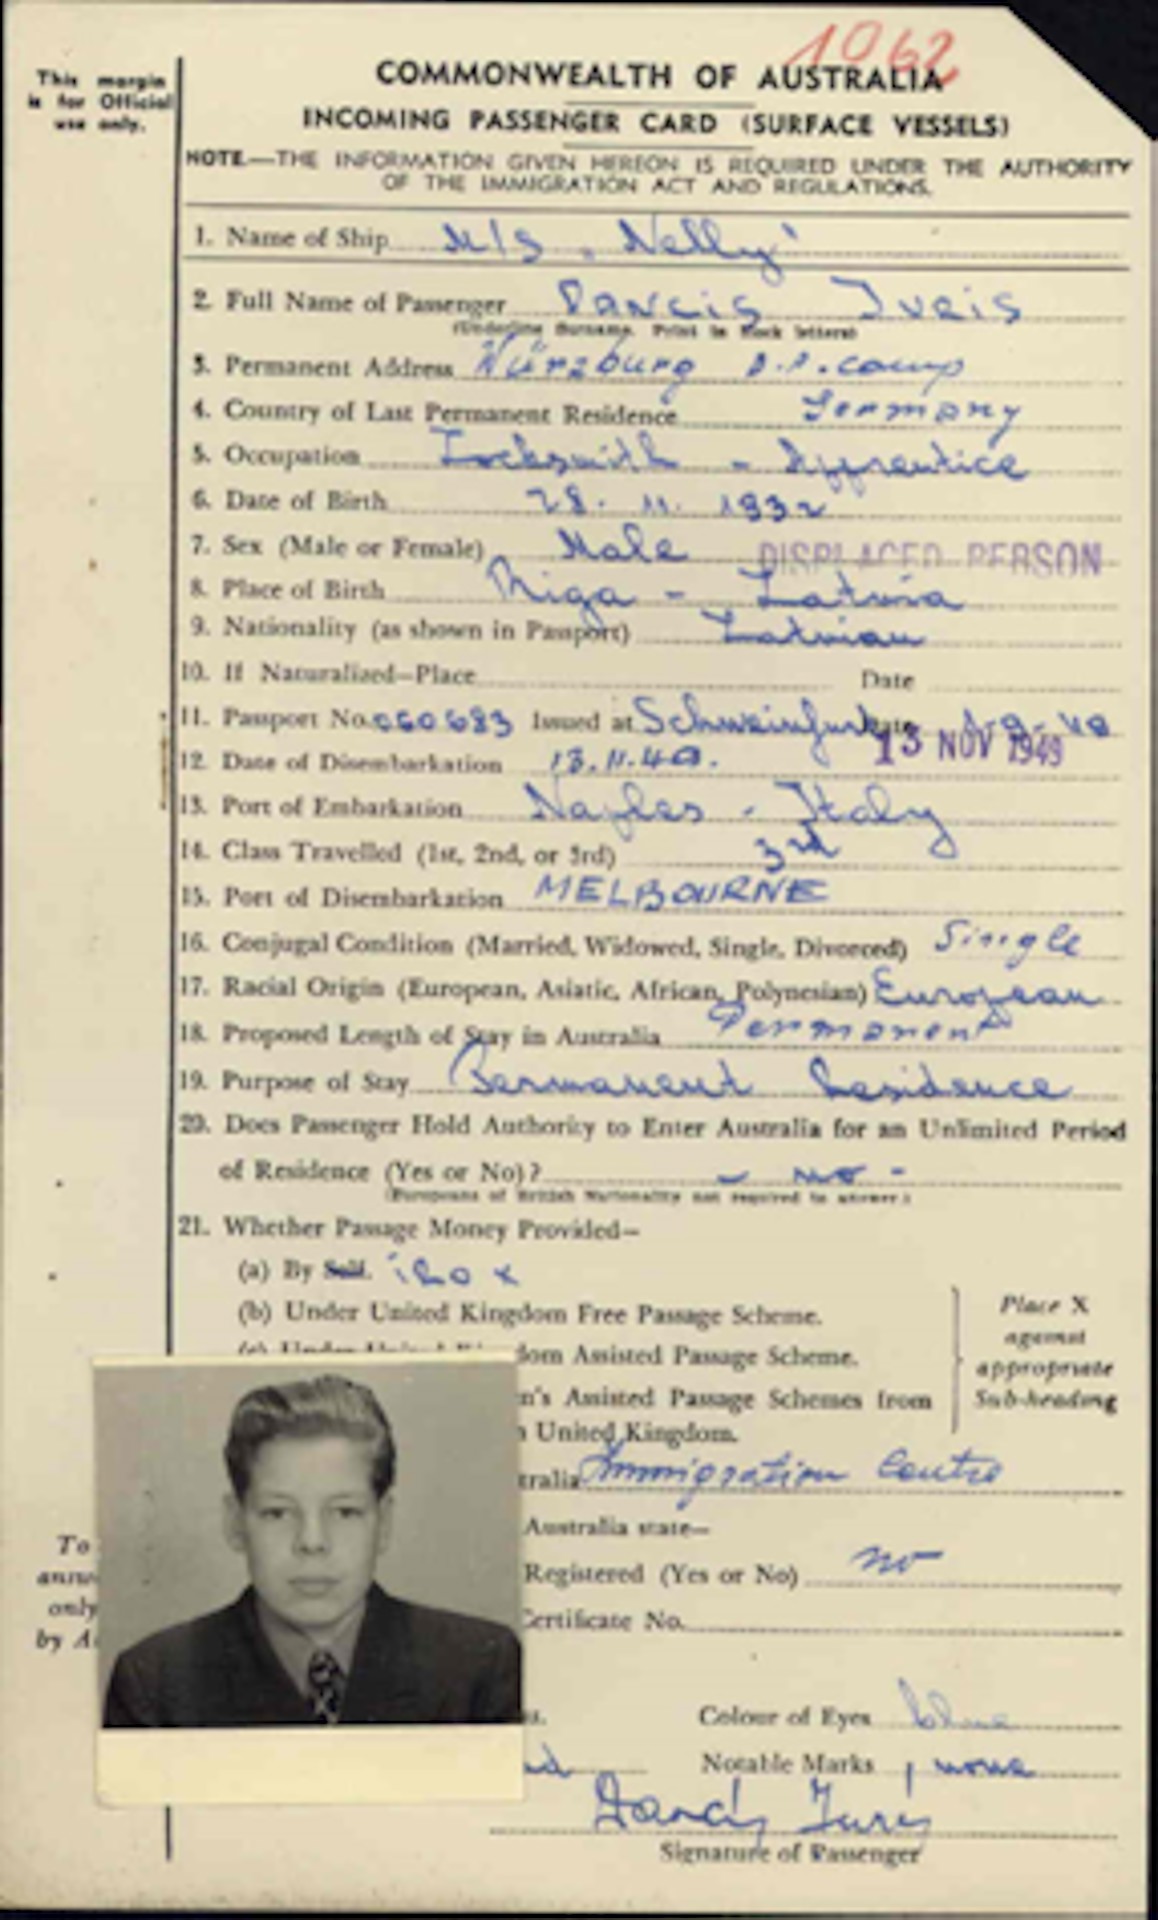 1062
This margin
is for Official
use only.
COMMONWEALTH OF AUSTRALIA
INCOMING PASSENGER CARD (SURFACE VESSELS)
NOTE.—THE INFORMATION GIVEN HEREON IS REQUIRED UNDER THE AUTHORITY
OF THE IMMIGRATION ACT AND REGULATIONS.
1. Name of Ship M/S „Nelly"
2. Full Name of Passenger DANCIS JURIS
(Underline Surname. Print in Block letters)
3. Permanent Address Würzburg D.P. camp
4. Country of Last Permanent Residence Germany
5. Occupation Locksmith - Apprentice
6. Date of Birth 28. 11. 1932
7. Sex (Male or Female) Male DISPLACED PERSON
8. Place of Birth Riga - Latvia
9. Nationality (as shown in Passport) Latvian
10. If Naturalized—Place Date
11. Passport No. 060683 Issued at Schweinfurt Date
13 NOV 1949
12. Date of Disembarkation 13.11.49.
13. Port of Embarkation Naples - Italy
14. Class Travelled (1st, 2nd, or 3rd) 3rd
15. Port of Disembarkation MELBOURNE
16. Conjugal Condition (Married, Widowed, Single, Divorced) Single
17. Racial Origin (European, Asiatic, African, Polynesian) European
18. Proposed Length of Stay in Australia Permanent
19. Purpose of Stay Permanent Residence
20. Does Passenger Hold Authority to Enter Australia for an Unlimited Period
of Residence (Yes or No)? - no -
(Europeans of British Nationality not required to answer.)
21. Whether Passage Money Provided—
(a) By Self. IRO x
(b) Under United Kingdom Free Passage Scheme.
dom Assisted Passage Scheme.
n's Assisted Passage Schemes from
United Kingdom.
Place X
against
appropriate
Sub-heading
tralia Immigration Centre
Australia state—
Registered (Yes or No) no
Certificate No.
To
answ
only
by A
Colour of Eyes blue
Notable Marks none
Dancis Juris
Signature of Passenger